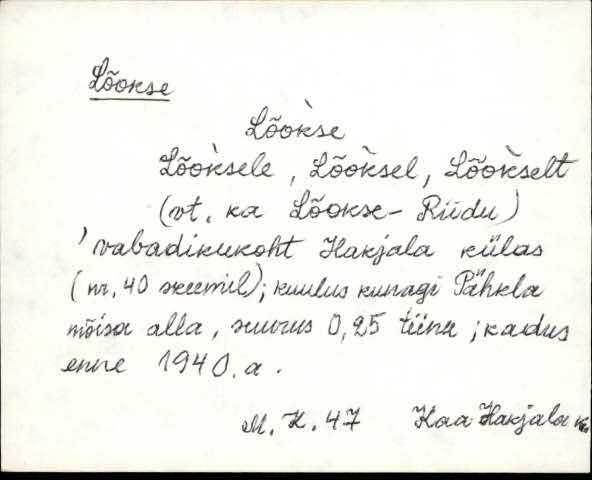 Lõokse
Lõo`kse
Lõo`ksele, Lõo`ksel, Lõo`kselt
(vt. ka Lõokse-Riidu)
'vabadikukoht Hakjala külas
(nr. 40 skeemil); kuulus kunagi Pähkla
mõisa alla, suurus 0,25 tiinu; kadus
enne 1940. a.
M. K. 47 Kaa Hakjala